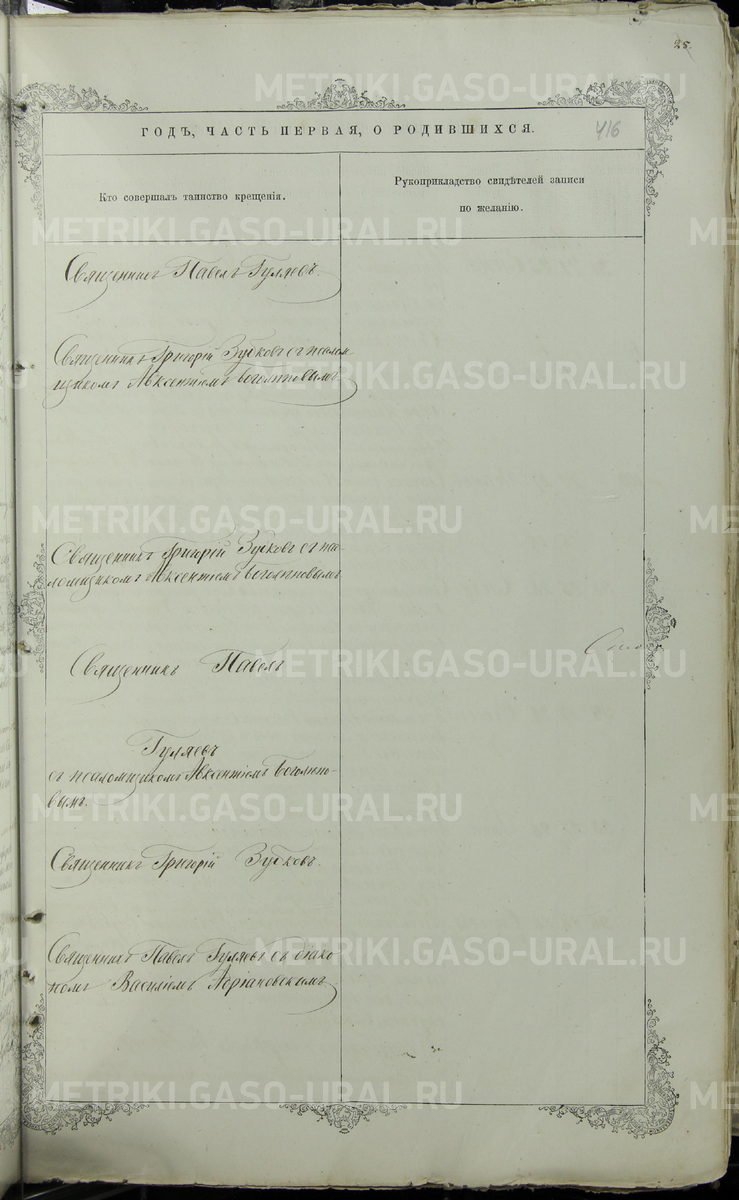 25.
METRIKI.GASO-URAL.RU
ГОДЪ, ЧАСТЬ ПЕРВАЯ, О РОДИВШИХСЯ.
416
Кто совершалъ таинство крещенія.
Рукоприкладство свидѣтелей записи
по желанію.
METRIKI.GASO-URAL.RU
Священникъ Павелъ Гуляевъ.
Священникъ Григорій Зубковъ съ псалом-
щикомъ Авксентіемъ Боголѣповымъ
METRIKI.GASO-URAL.RU
METRIKI.GASO-URAL.RU
Священникъ Григорій Зубковъ съ пса-
ломщикомъ Авксентіемъ Боголѣповымъ
Священникъ Павелъ
METRIKI.GASO-URAL.RU
Гуляевъ
съ псаломщикомъ Авксентіемъ Боголѣпо-
вымъ.
METRIKI.GASO-URAL.RU
Священникъ Григорій Зубковъ.
Священникъ Павелъ Гуляевъ съ діако-
номъ Василіемъ Адріановскимъ
METRIKI.GASO-URAL.RU
METRIKI.GASO-URAL.RU